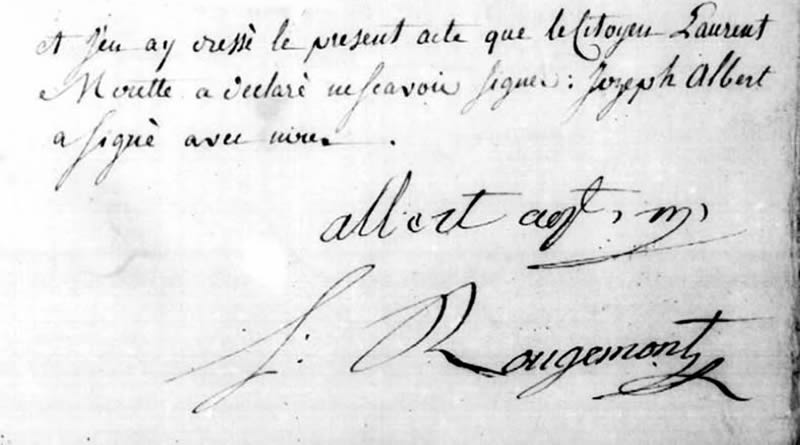 et j'en ay dressè le present acte que le Citoyen Laurent
Morette a declarè ne scavoir signer : Jozeph Albert
a signè avec nous .
albert
J : Rougemont